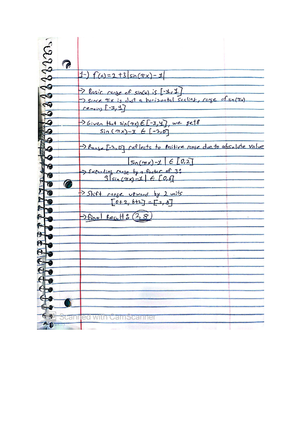 1-) f(x)=2+3|sin(πx)-1|
→ Basic range of sin(x) is [-1,1]
→ since πx is just a horizontal scaling, range of sin(πx)
remains [-1,1]
→ Given that sin(πx) ∈ [-1,1], we get:
sin(πx)-1 ∈ [-2,0]
→ Range [-2,0] reflects to positive range due to absolute value
|sin(πx)-1| ∈ [0,2]
→ Extending range by a factor of 3:
3|sin(πx)-1| ∈ [0,6]
→ Shift range upward by 2 units
[0+2, 6+2] = [2,8]
→ Final Result: [2,8]
Scanned with CamScanner